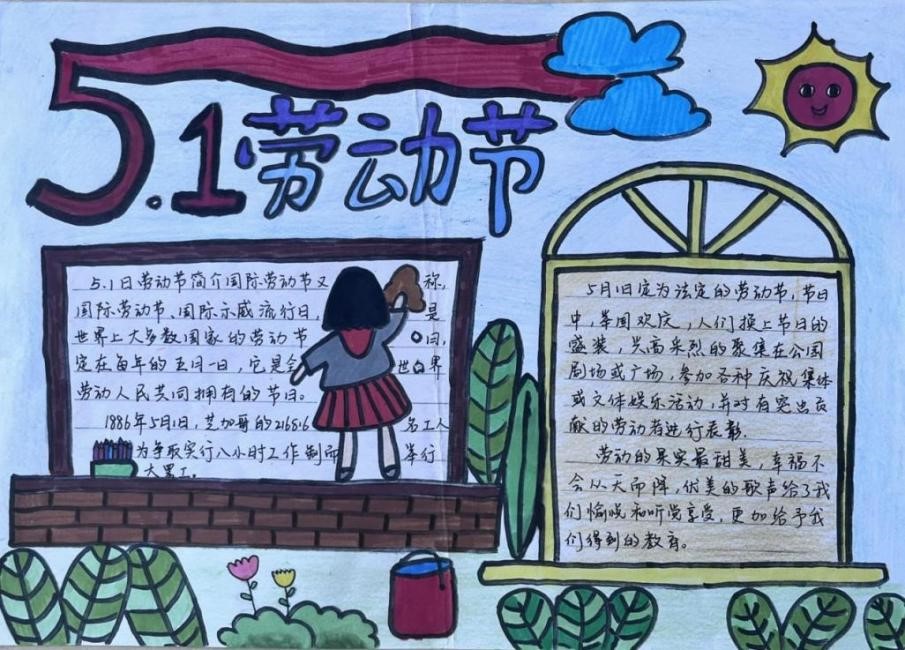 5.1劳动节
5.1日劳动节简介国际劳动节又 称,
国际劳动节、国际示威流行日, 是
世界上大多数国家的劳动节 日,
定在每年的五月一日,它是全 世 界
劳动人民共同拥有的节日。
1886年5月1日,芝加哥的216816 名工人
为争取实行八小时工作制而 举行
大罢工。
5月1日定为法定的劳动节,节日
中,举国欢庆,人们换上节日的
盛装,兴高采烈的聚集在公园
剧场或广场,参加各种庆祝集体
或文体娱乐活动,并对有突出贡
献的劳动者进行表彰.
劳动的果实最甜美,幸福不
会从天而降,优美的歌声给了我
们愉悦和听觉享受,更加给予我
们得到的教育。